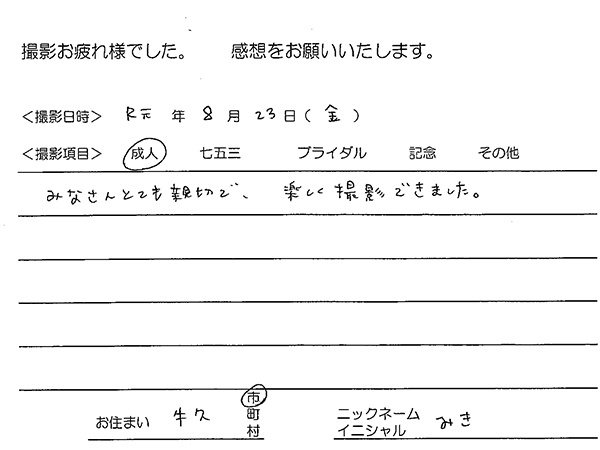 撮影お疲れ様でした。　感想をお願いいたします。
＜撮影日時＞ R元 年 8 月 23 日（ 金 ）
＜撮影項目＞ 成人 七五三 ブライダル 記念 その他
みなさんとても親切で、楽しく撮影できました。
お住まい 牛久 市町村 ニックネーム イニシャル みき